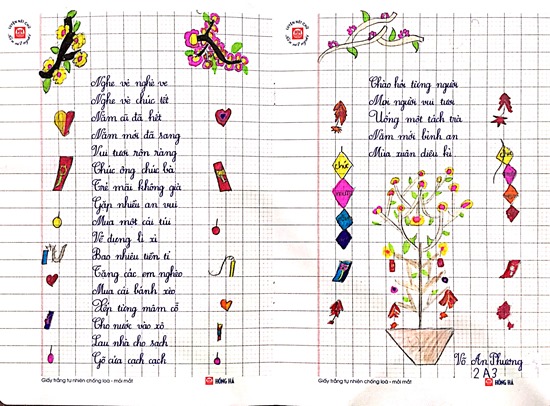 Nghe vẻ nghe ve
Nghe vè chúc tết
Năm cũ đã hết
Năm mới đã sang
Vui tươi rộn ràng
Chúc ông chúc bà
Trẻ mãi không già
Gặp nhiều an vui
Mua một cái túi
Về đựng lì xì
Bao nhiêu tiền tỉ
Tặng các em nghèo
Mua cái bánh xèo
Xếp từng mâm cỗ
Cho nước vào xô
Lau nhà cho sạch
Gõ cửa cạch cạch
Giấy trắng tự nhiên chống loá - mỏi mắt
HỒNG HÀ
Chào hỏi từng người
Mọi người vui tươi
Uống một tách trà
Năm mới bình an
Mùa xuân diệu kì
chúc
Võ An Phương
2A3
Giấy trắng tự nhiên chống loá - mỏi mắt
HỒNG HÀ